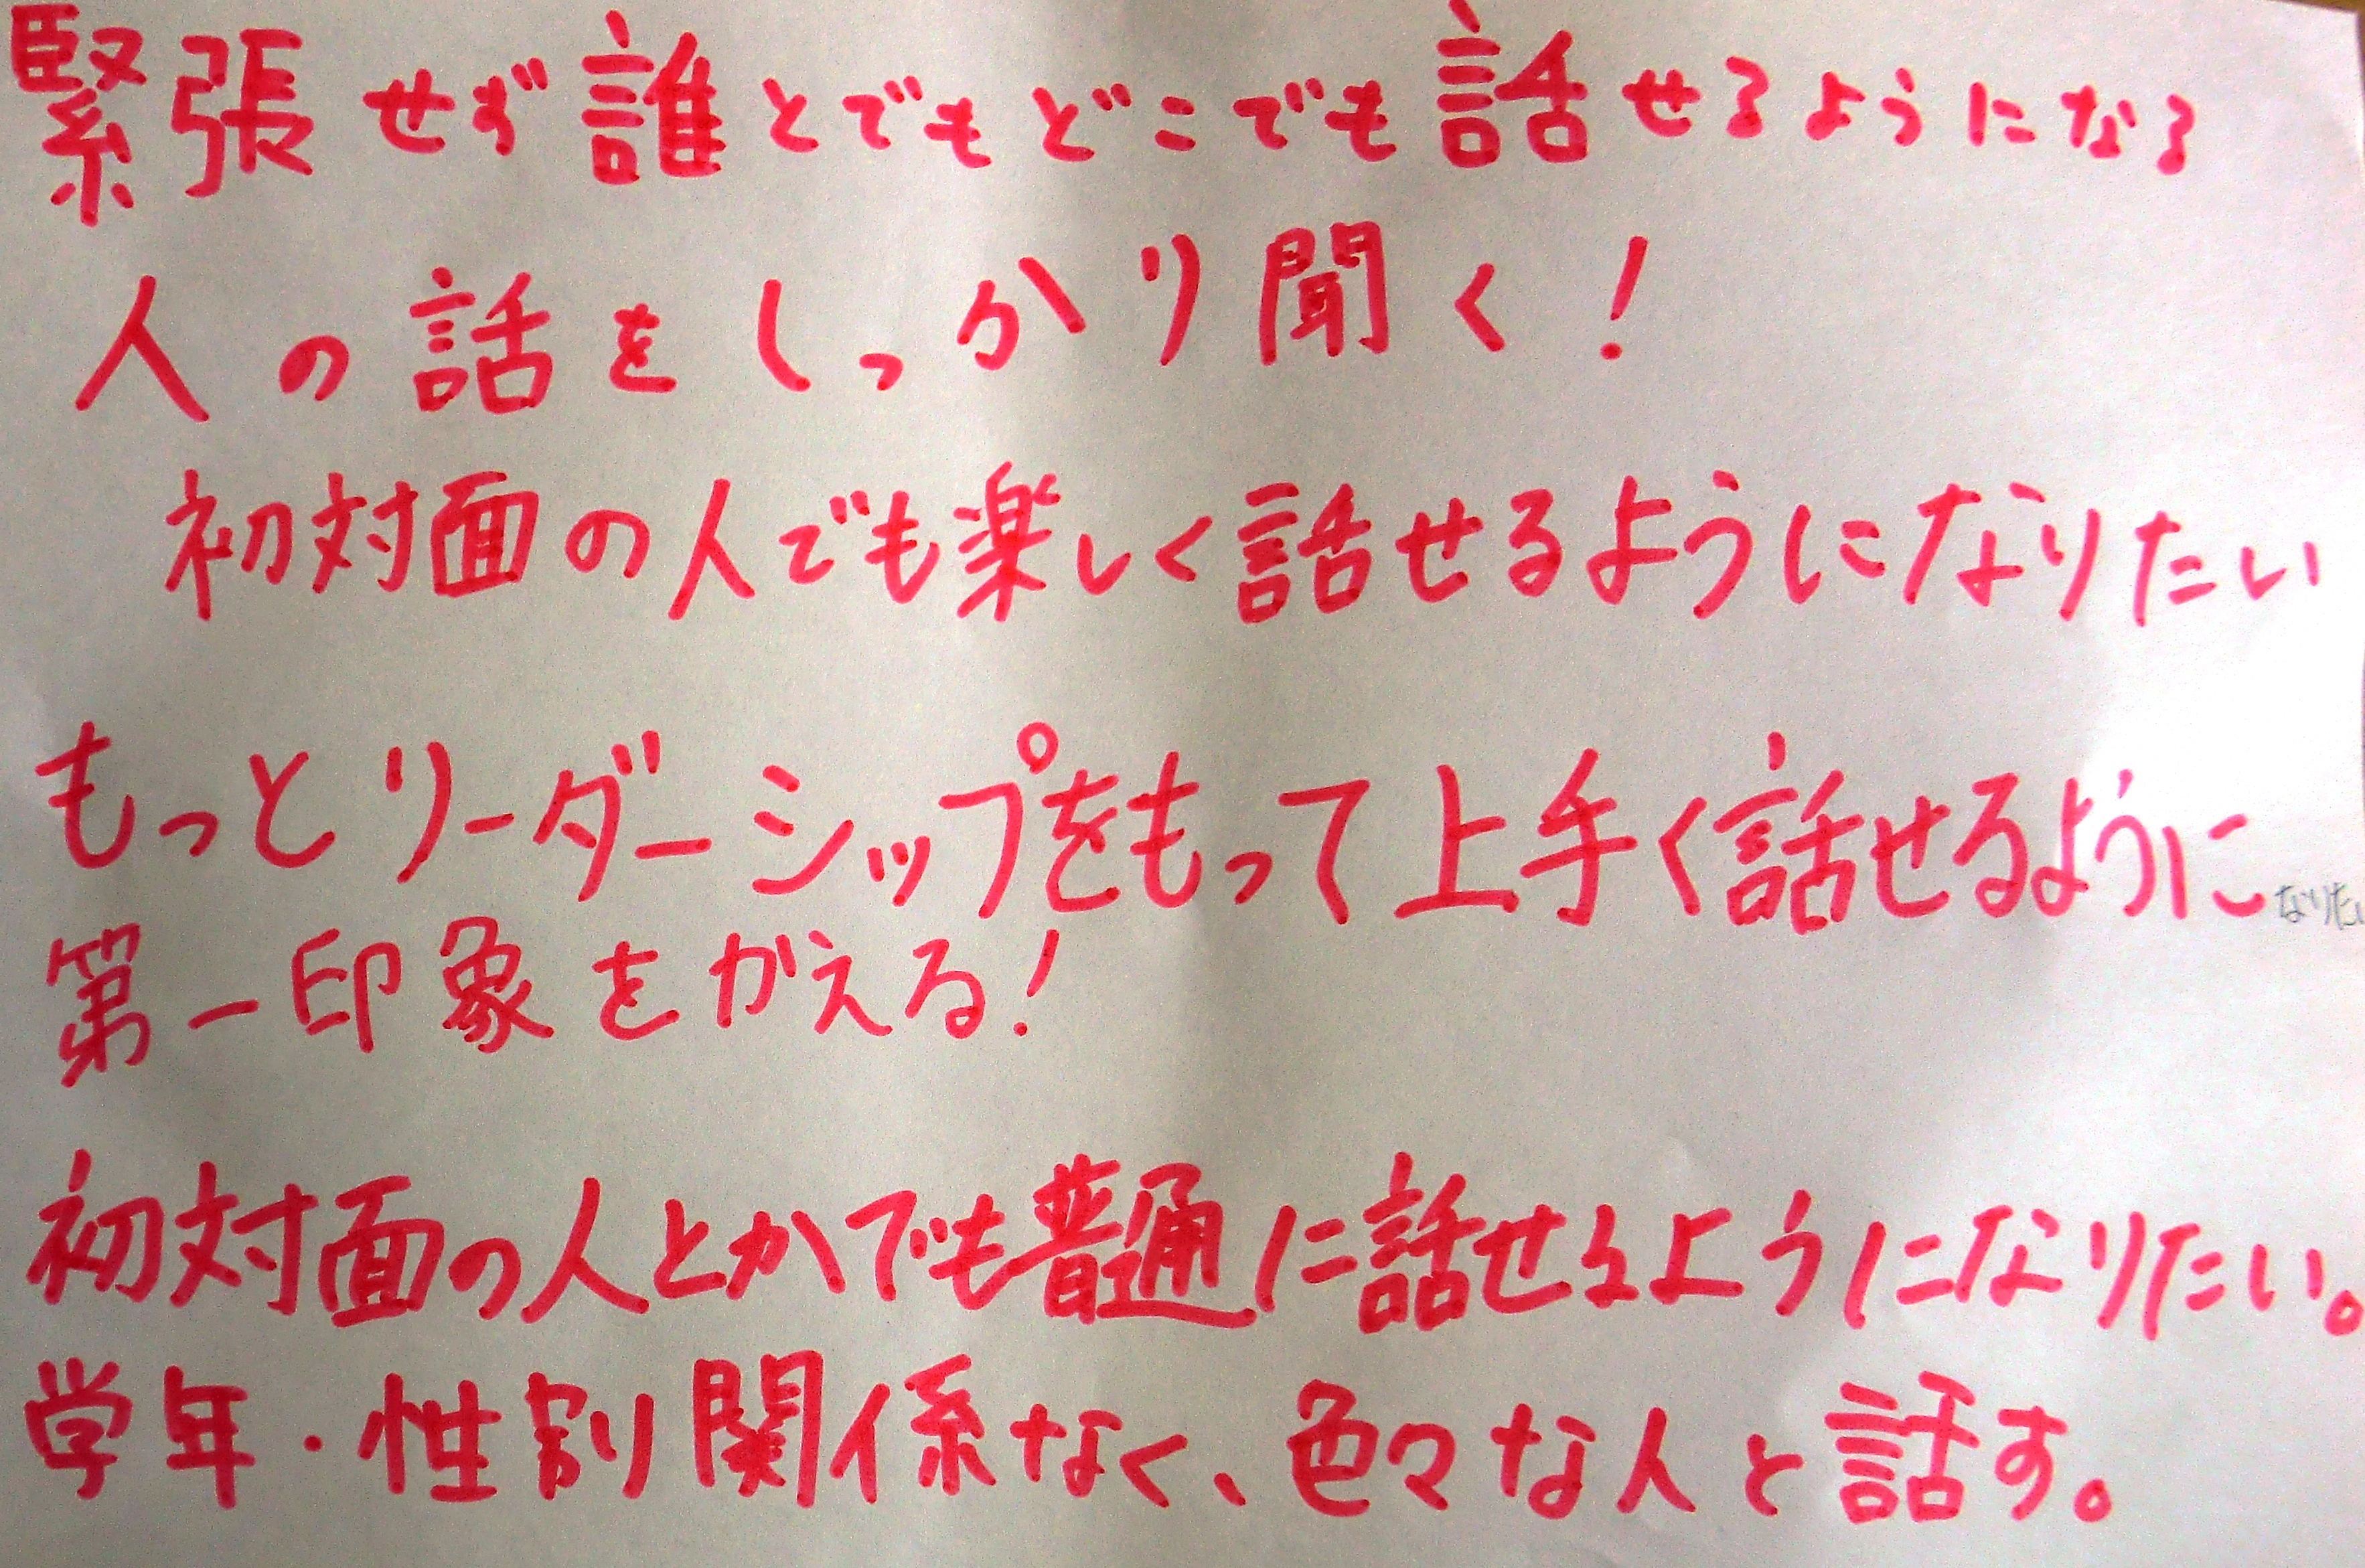 緊張せず誰とでもどこでも話せるようになる
人の話をしっかり聞く！
初対面の人でも楽しく話せるようになりたい
もっとリーダーシップをもって上手く話せるようになりたい
第一印象をかえる！
初対面の人とかでも普通に話せるようになりたい。
学年・性別関係なく、色々な人と話す。